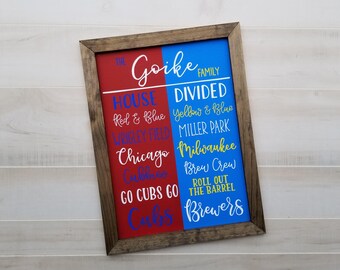 THE Goike FAMILY
HOUSE DIVIDED
Red & Blue
WRIGLEY FIELD
Chicago
Cubbies
GO CUBS GO
Cubs
Yellow & Blue
MILLER PARK
Milwaukee
Brew Crew
ROLL OUT
THE BARREL
Brewers